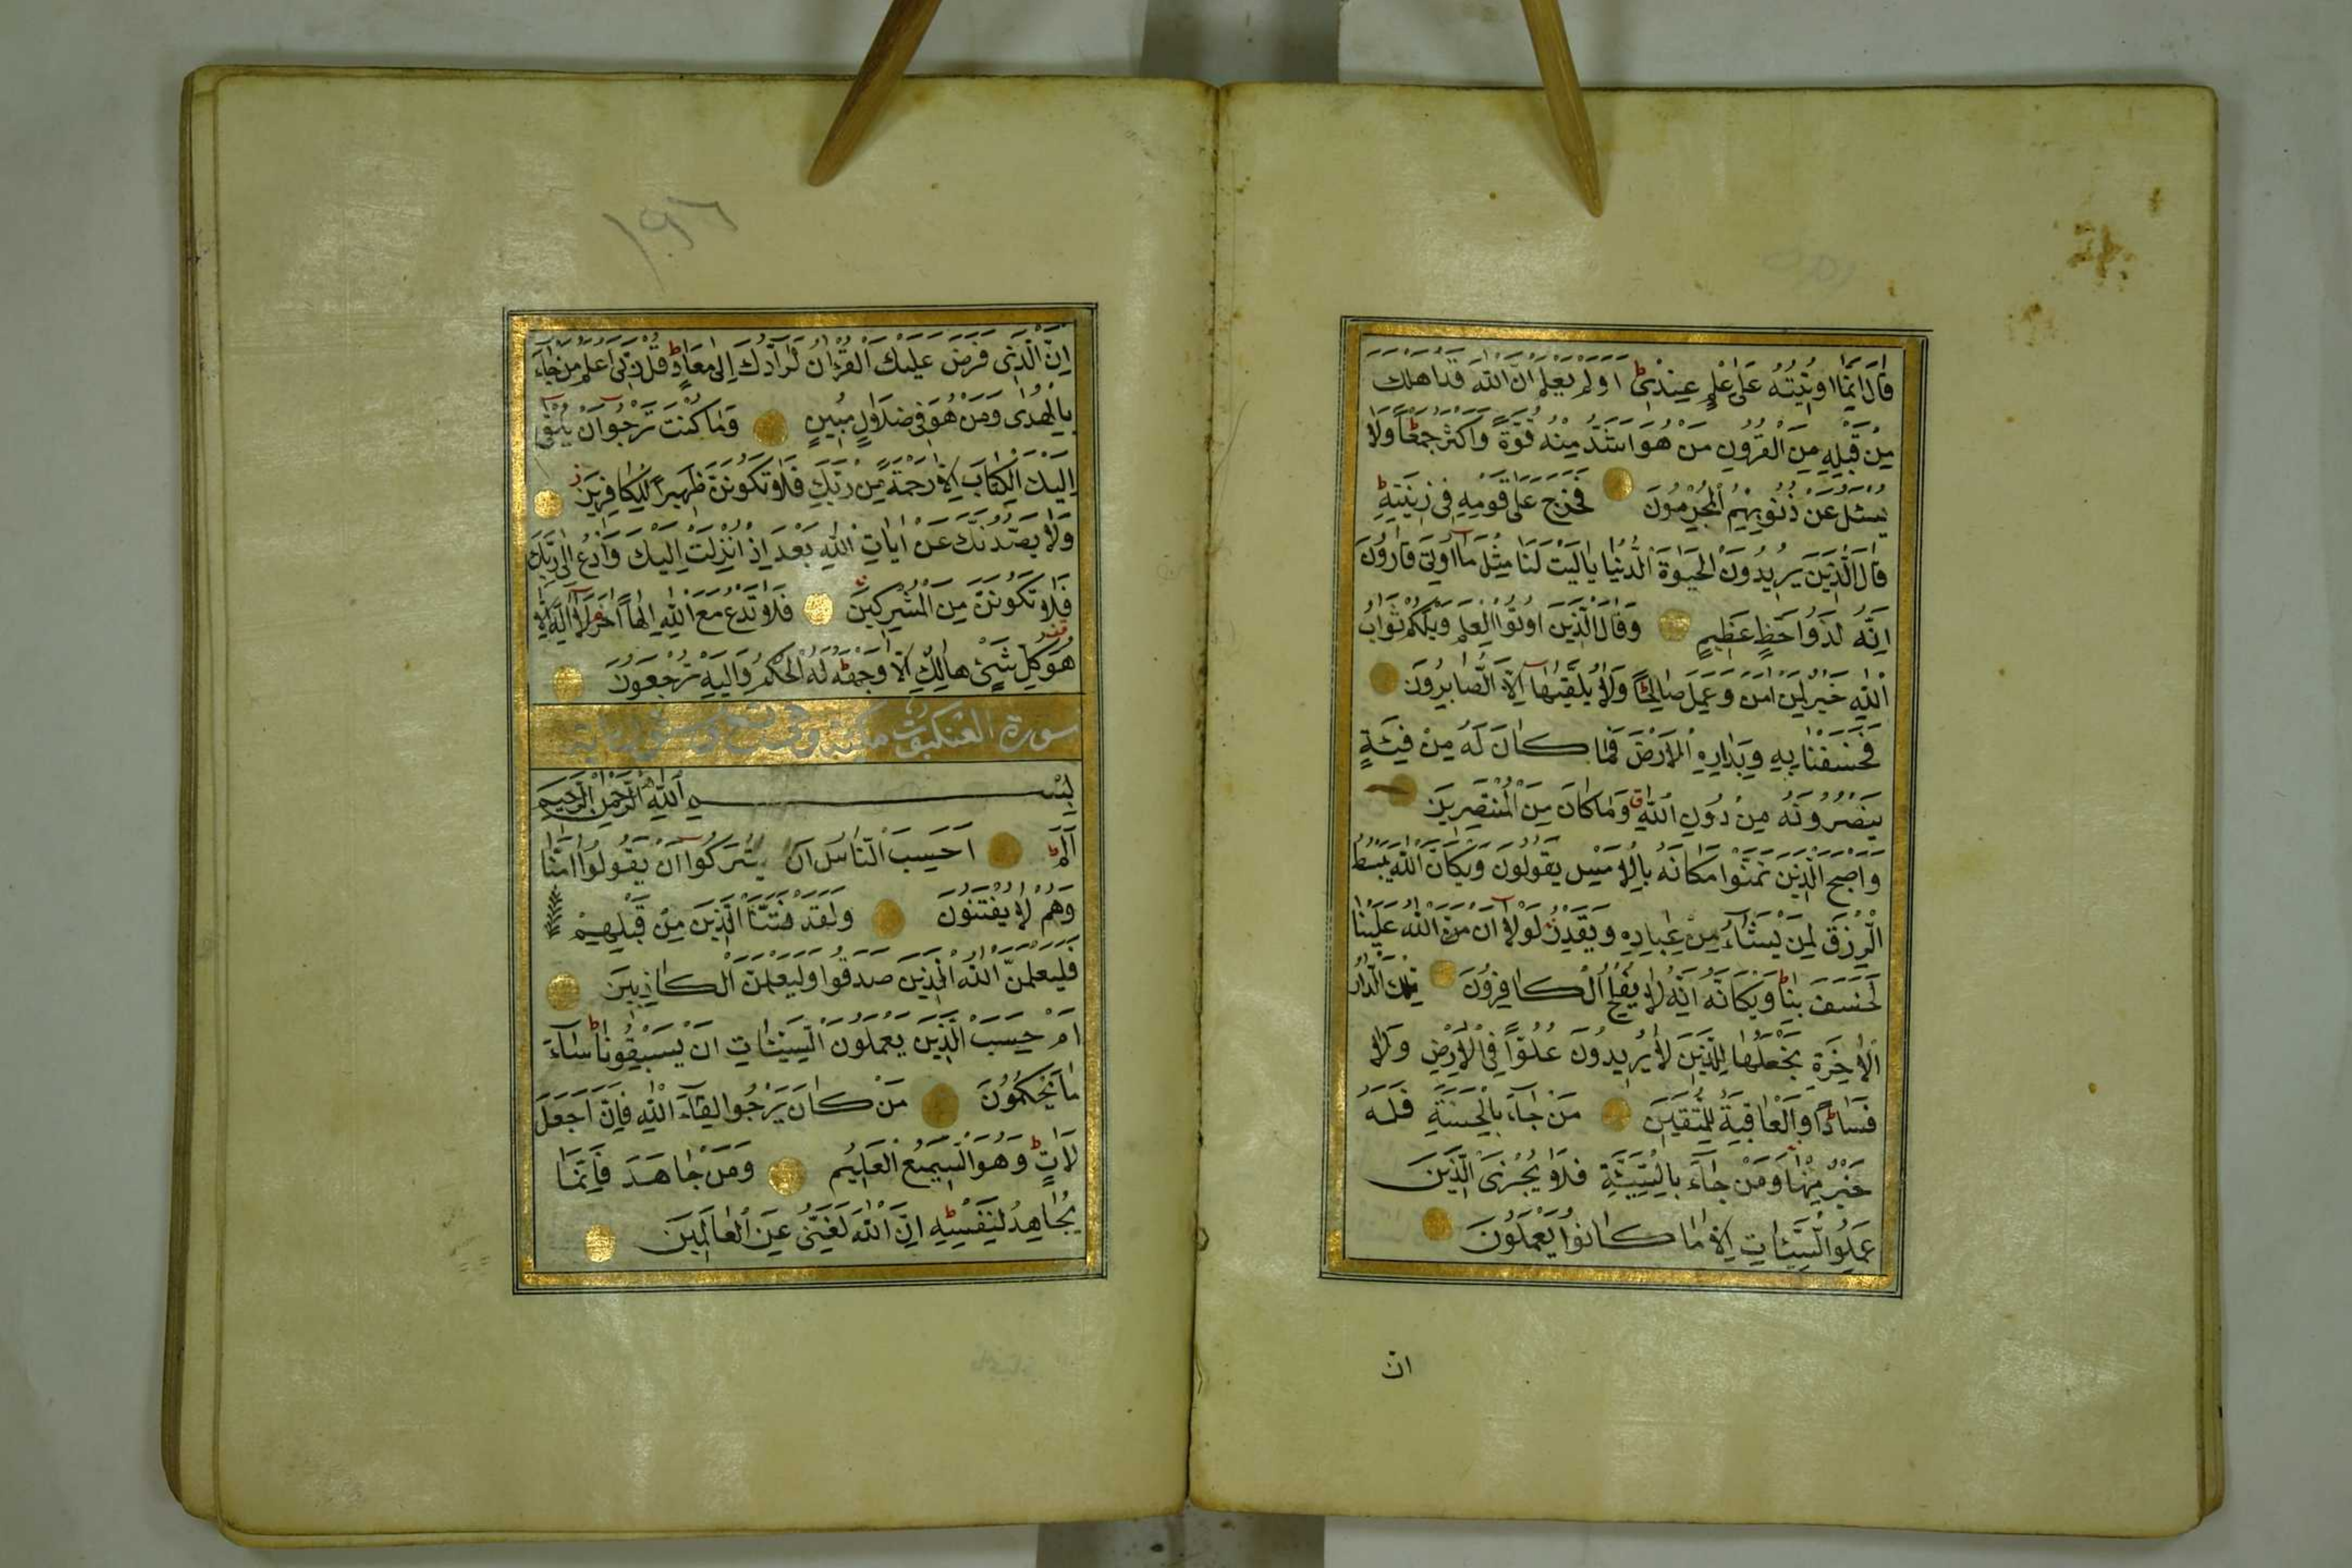 قَالَ اِنَّمَٓا اُو۫ت۪يتُهُ عَلٰى عِلْمٍ عِنْد۪ىۜ اَوَلَمْ يَعْلَمْ اَنَّ اللّٰهَ قَدْ اَهْلَكَ
مِنْ قَبْلِهِ مِنَ الْقُرُونِ مَنْ هُوَ اَشَدُّ مِنْهُ قُوَّةً وَاَكْثَرُ جَمْعًا وَلَا
يُسْئَلُ عَنْ ذُنُوبِهِمُ الْمُجْرِمُونَ فَخَرَجَ عَلٰى قَوْمِهِ فِى زِينَتِهِ
قَالَ الَّذِينَ يُرِيدُونَ الْحَيٰوةَ الدُّنْيَا يَالَيْتَ لَنَا مِثْلَ مَٓا اُوتِىَ قَارُونُ
اِنَّهُ لَذُوا حَظٍّ عَظِيمٍ وَقَالَ الَّذِينَ اُوتُوا الْعِلْمَ وَيْلَكُمْ ثَوَابُ
اللّٰهِ خَيْرٌ لِمَنْ اٰمَنَ وَعَمِلَ صَالِحًا وَلَا يُلَقّٰيهَٓا اِلَّا الصَّابِرُونَ
فَخَسَفْنَا بِهِ وَبِدَارِهِ الْاَرْضَ فَمَا كَانَ لَهُ مِنْ فِئَةٍ
يَنْصُرُونَهُ مِنْ دُونِ اللّٰهِ وَمَا كَانَ مِنَ الْمُنْتَصِرِينَ
وَاَصْبَحَ الَّذِينَ تَمَنَّوْا مَكَانَهُ بِالْاَمْسِ يَقُولُونَ وَيْكَاَنَّ اللّٰهَ يَبْسُطُ
الرِّزْقَ لِمَنْ يَشَٓاءُ مِنْ عِبَادِهِ وَيَقْدِرُ لَوْلَٓا اَنْ مَنَّ اللّٰهُ عَلَيْنَا
لَخَسَفَ بِنَا وَيْكَاَنَّهُ اِنَّهُ لَا يُفْلِحُ الْكَافِرُونَ تِلْكَ الدَّارُ
الْاٰخِرَةُ نَجْعَلُهَا لِلَّذِينَ لَا يُرِيدُونَ عُلُوًّا فِى الْاَرْضِ وَلَا
فَسَادًا وَالْعَاقِبَةُ لِلْمُتَّقِينَ مَنْ جَٓاءَ بِالْحَسَنَةِ فَلَهُ
خَيْرٌ مِنْهَا وَمَنْ جَٓاءَ بِالسَّيِّئَةِ فَلَا يُجْزَى الَّذِينَ
عَمِلُوا السَّيِّئَاتِ اِلَّا مَا كَانُوا يَعْمَلُونَ
ان
اِنَّ الَّذِى فَرَضَ عَلَيْكَ الْقُرْاٰنَ لَرَٓادُّكَ اِلٰى مَعَادٍ قُلْ رَبِّى اَعْلَمُ مَنْ جَٓاءَ
بِالْهُدٰى وَمَنْ هُوَ فِى ضَلَالٍ مُبِينٍ وَمَا كُنْتَ تَرْجُٓوا اَنْ يُلْقٰٓى
اِلَيْكَ الْكِتَابُ اِلَّا رَحْمَةً مِنْ رَبِّكَ فَلَا تَكُونَنَّ ظَهِيرًا لِلْكَافِرِينَ
وَلَا يَصُدُّنَّكَ عَنْ اٰيَاتِ اللّٰهِ بَعْدَ اِذْ اُنْزِلَتْ اِلَيْكَ وَادْعُ اِلٰى رَبِّكَ
فَلَا تَكُونَنَّ مِنَ الْمُشْرِكِينَ فَلَا تَدْعُ مَعَ اللّٰهِ اِلٰهًا اٰخَرَ لَٓا اِلٰهَ اِلَّا
هُوَ كُلُّ شَىْءٍ هَالِكٌ اِلَّا وَجْهَهُ لَهُ الْحُكْمُ وَاِلَيْهِ تُرْجَعُونَ
سورة العنكبوت مكية وهى تسع وستون اية
بِسْمِ اللّٰهِ الرَّحْمٰنِ الرَّحِيمِ
الٓمٓ اَحَسِبَ النَّاسُ اَنْ يُتْرَكُٓوا اَنْ يَقُولُٓوا اٰمَنَّا
وَهُمْ لَا يُفْتَنُونَ وَلَقَدْ فَتَنَّا الَّذِينَ مِنْ قَبْلِهِمْ
فَلَيَعْلَمَنَّ اللّٰهُ الَّذِينَ صَدَقُوا وَلَيَعْلَمَنَّ الْكَاذِبِينَ
اَمْ حَسِبَ الَّذِينَ يَعْمَلُونَ السَّيِّئَاتِ اَنْ يَسْبِقُونَا سَٓاءَ
مَا يَحْكُمُونَ مَنْ كَانَ يَرْجُوا لِقَٓاءَ اللّٰهِ فَاِنَّ اَجَلَ
لَاٰتٍ وَهُوَ السَّمِيعُ الْعَلِيمُ وَمَنْ جَاهَدَ فَاِنَّمَا
يُجَاهِدُ لِنَفْسِهِ اِنَّ اللّٰهَ لَغَنِىٌّ عَنِ الْعَالَمِينَ